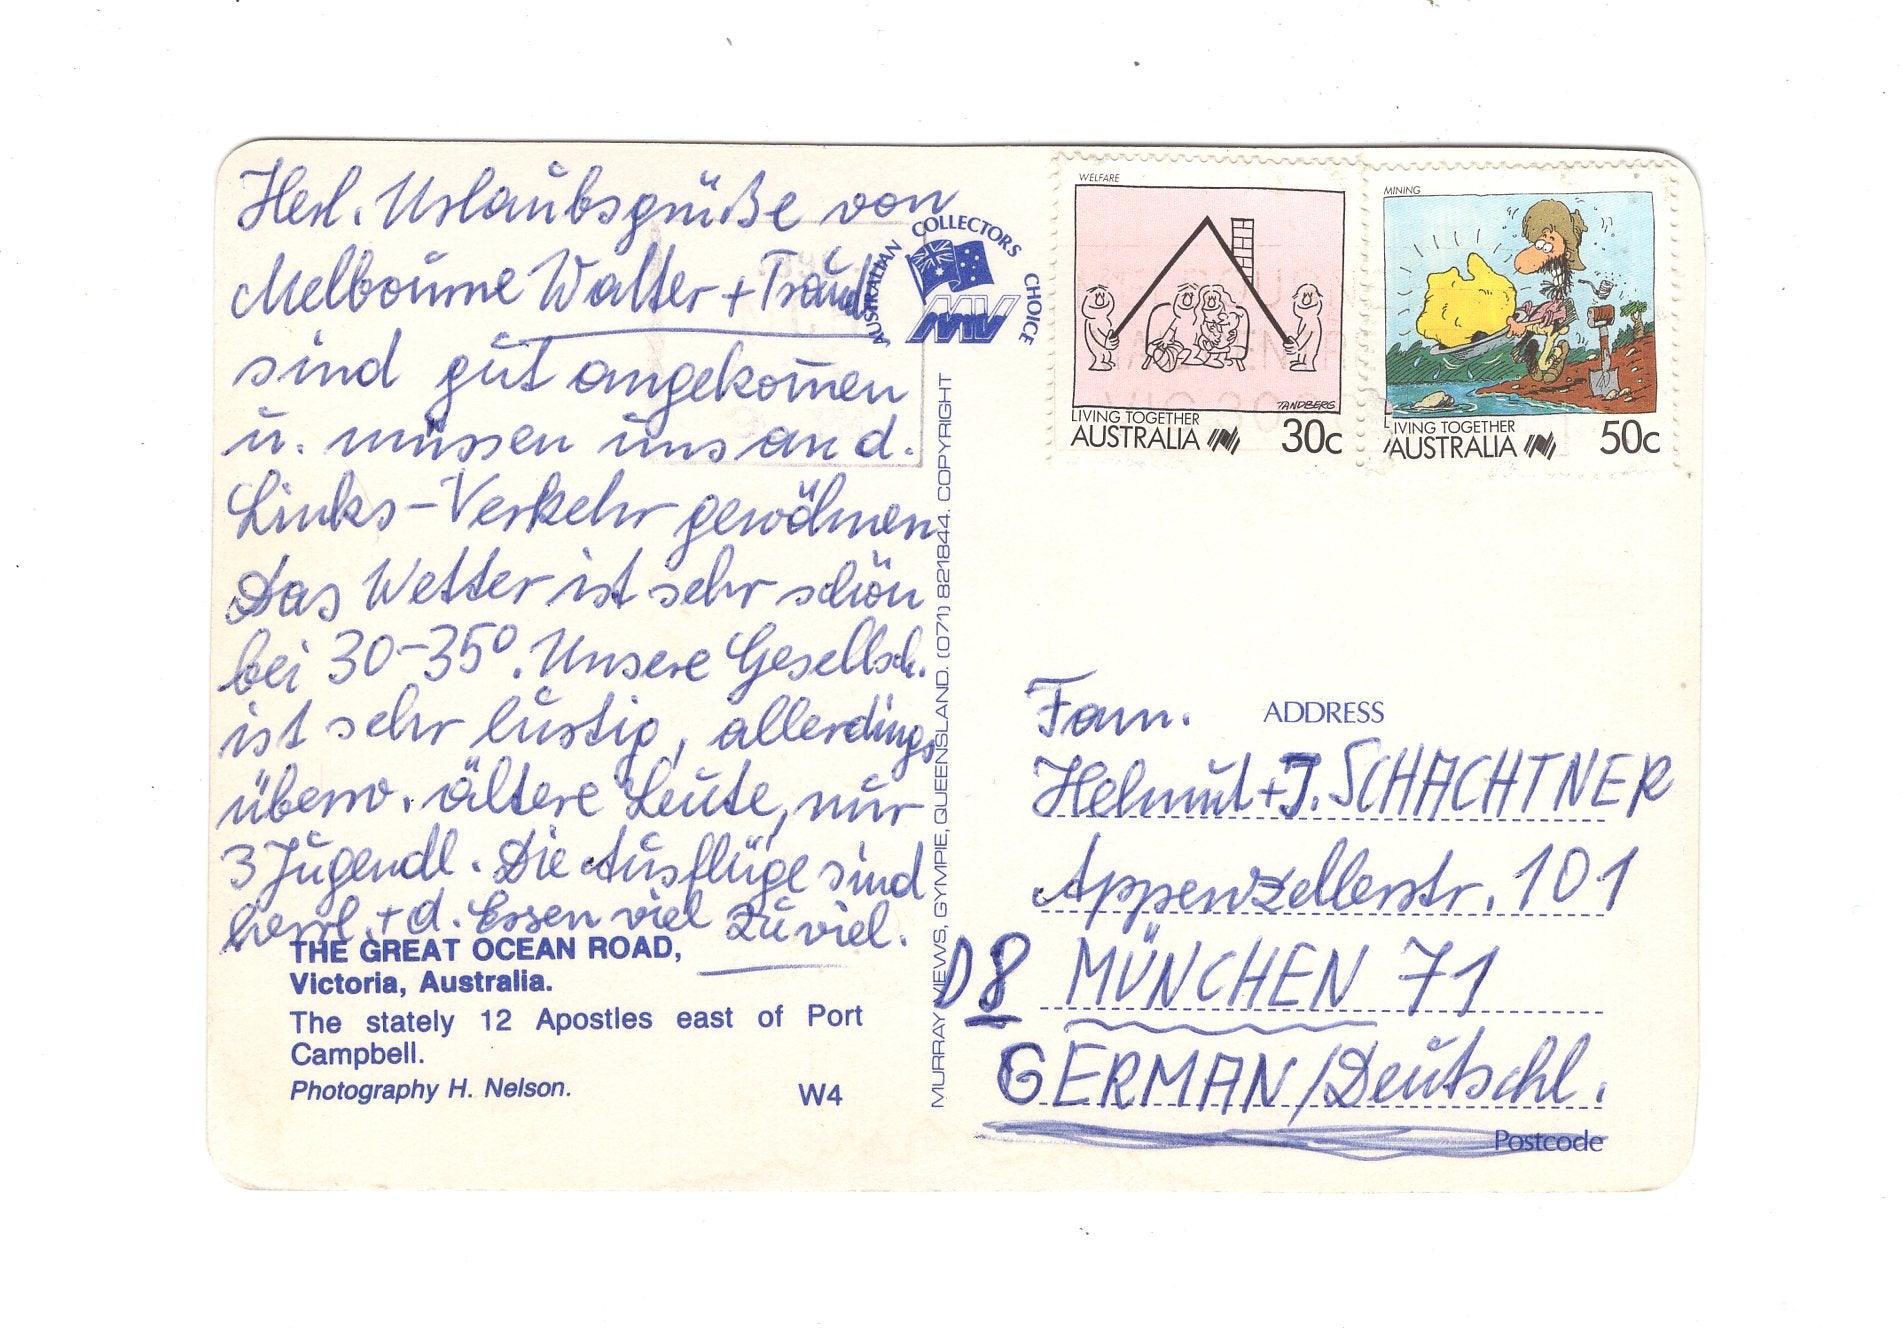 Herl. Urlaubsgrüße von
Melbourne Walter + Traudl
sind gut angekom̄en
u. müssen uns an d.
Links-Verkehr gewöhnen
Das Wetter ist sehr schön
bei 30-35°. Unsere Gesellsch.
ist sehr lustig, allerdings
überw. ältere Leute, nur
3 Jugendl. Die Ausflüge sind
herrl. + d. Essen viel zu viel.
THE GREAT OCEAN ROAD,
Victoria, Australia.
The stately 12 Apostles east of Port
Campbell.
Photography H. Nelson. W4
AUSTRALIAN COLLECTORS CHOICE
MV
MURRAY VIEWS, GYMPIE, QUEENSLAND. (071) 821844. COPYRIGHT
WELFARE
TANDBERG
LIVING TOGETHER
AUSTRALIA 30c
MINING
LIVING TOGETHER
AUSTRALIA 50c
Fam. ADDRESS
Helmut + J. SCHACHTNER
Appenzellerstr. 101
D8 MÜNCHEN 71
GERMAN/Deutschl.
Postcode